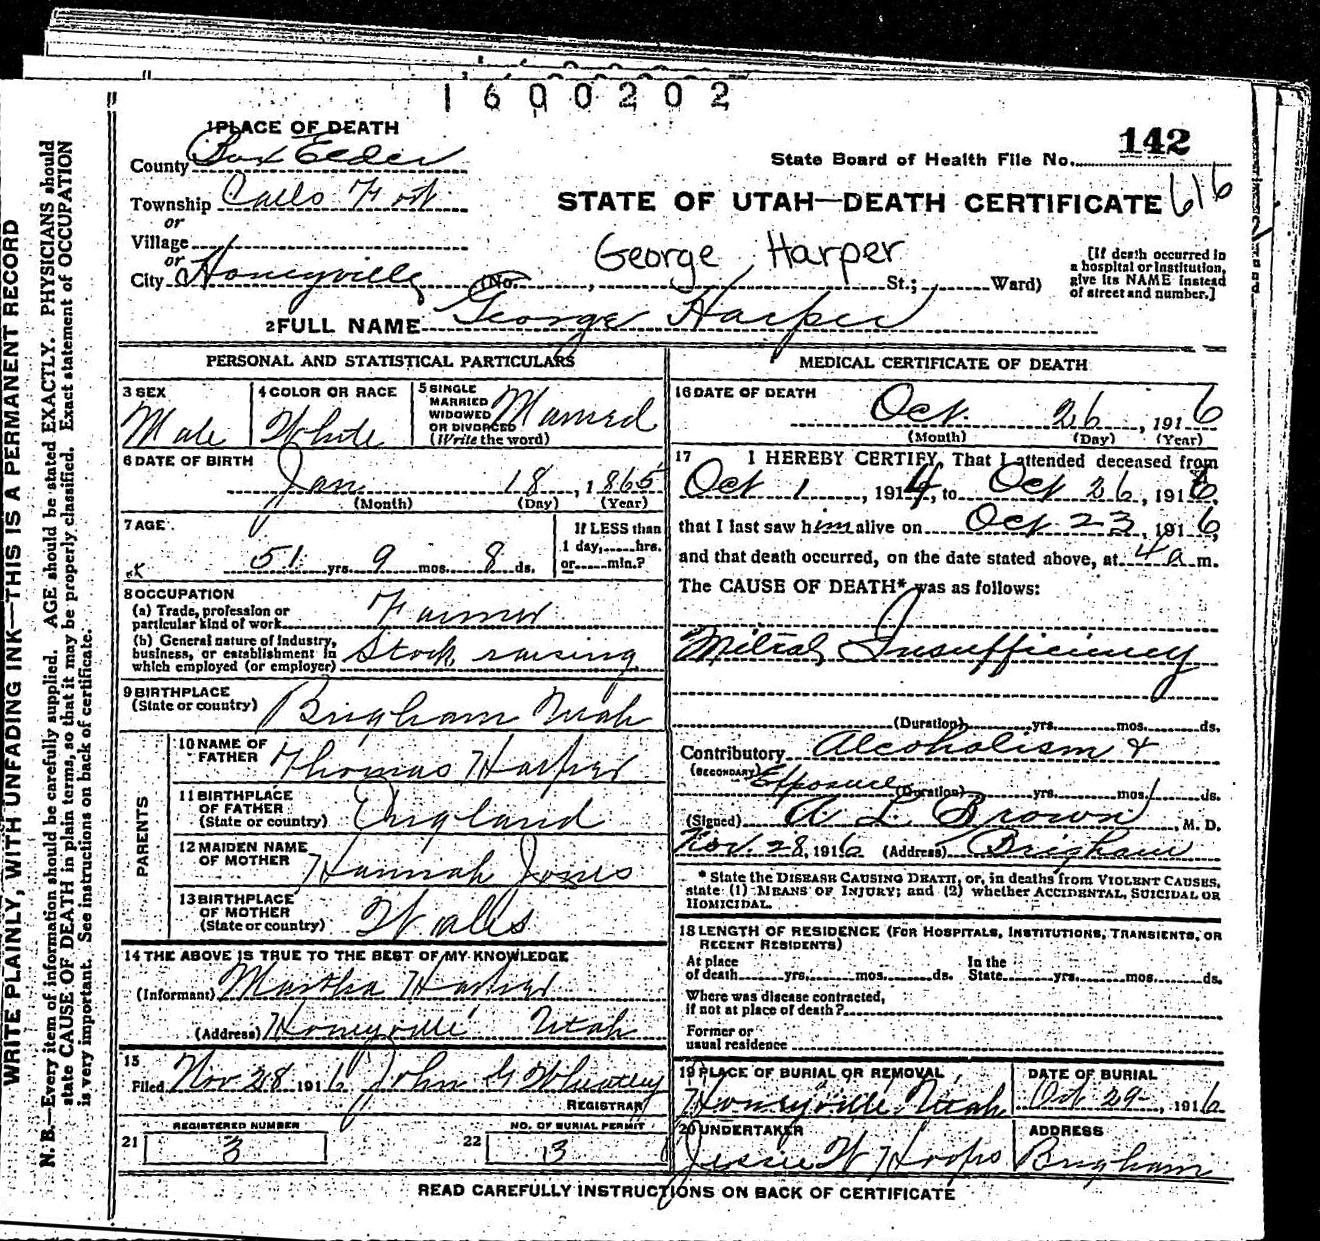 1600202
1 PLACE OF DEATH
142
County Box Elder
State Board of Health File No.
Township Calls Fort
616
STATE OF UTAH—DEATH CERTIFICATE
or
Village
George Harper
or
City Honeyville (No. , St.; Ward)
[If death occurred in
a hospital or institution,
give its NAME instead
of street and number.]
2 FULL NAME George Harper
PERSONAL AND STATISTICAL PARTICULARS
3 SEX
Male
4 COLOR OR RACE
White
5 SINGLE
MARRIED
WIDOWED
OR DIVORCED
(Write the word)
Married
6 DATE OF BIRTH
Jan 18, 1865
(Month) (Day) (Year)
7 AGE
51 yrs. 9 mos. 8 ds.
If LESS than
1 day, hrs.
or min.?
8 OCCUPATION
(a) Trade, profession or
particular kind of work Farmer
(b) General nature of industry,
business, or establishment in
which employed (or employer) Stock raising
9 BIRTHPLACE
(State or country) Brigham Utah
PARENTS
10 NAME OF
FATHER Thomas Harper
11 BIRTHPLACE
OF FATHER
(State or country) England
12 MAIDEN NAME
OF MOTHER Hannah Jones
13 BIRTHPLACE
OF MOTHER
(State or country) Wales
14 THE ABOVE IS TRUE TO THE BEST OF MY KNOWLEDGE
(Informant) Martha Harper
(Address) Honeyville Utah
15
Filed Nov 28 1916 John G Wheatley
REGISTRAR
REGISTERED NUMBER
21 3
NO. OF BURIAL PERMIT
22 13
MEDICAL CERTIFICATE OF DEATH
16 DATE OF DEATH
Oct. 26, 1916
(Month) (Day) (Year)
17 I HEREBY CERTIFY, That I attended deceased from
Oct 1, 1914, to Oct 26, 1916,
that I last saw him alive on Oct 23, 1916,
and that death occurred, on the date stated above, at 4 a m.
The CAUSE OF DEATH* was as follows:
Mitral Insufficiency
(Duration) yrs. mos. ds.
Contributory Alcoholism &
(SECONDARY) Exposure
(Duration) yrs. mos. ds.
(Signed) A L Brown, M. D.
Nov. 28, 1916 (Address) Brigham
* State the DISEASE CAUSING DEATH, or, in deaths from VIOLENT CAUSES,
state (1) MEANS OF INJURY; and (2) whether ACCIDENTAL, SUICIDAL OR
HOMICIDAL.
18 LENGTH OF RESIDENCE (FOR HOSPITALS, INSTITUTIONS, TRANSIENTS, OR
RECENT RESIDENTS)
At place
of death yrs. mos. ds.
In the
State yrs. mos. ds.
Where was disease contracted,
if not at place of death?
Former or
usual residence
19 PLACE OF BURIAL OR REMOVAL
Honeyville Utah
DATE OF BURIAL
Oct 29, 1916
20 UNDERTAKER
Jessie W Hoops
ADDRESS
Brigham
READ CAREFULLY INSTRUCTIONS ON BACK OF CERTIFICATE
WRITE PLAINLY, WITH UNFADING INK—THIS IS A PERMANENT RECORD
N. B.—Every item of information should be carefully supplied. AGE should be stated EXACTLY. PHYSICIANS should
state CAUSE OF DEATH in plain terms, so that it may be properly classified. Exact statement of OCCUPATION
is very important. See instructions on back of certificate.